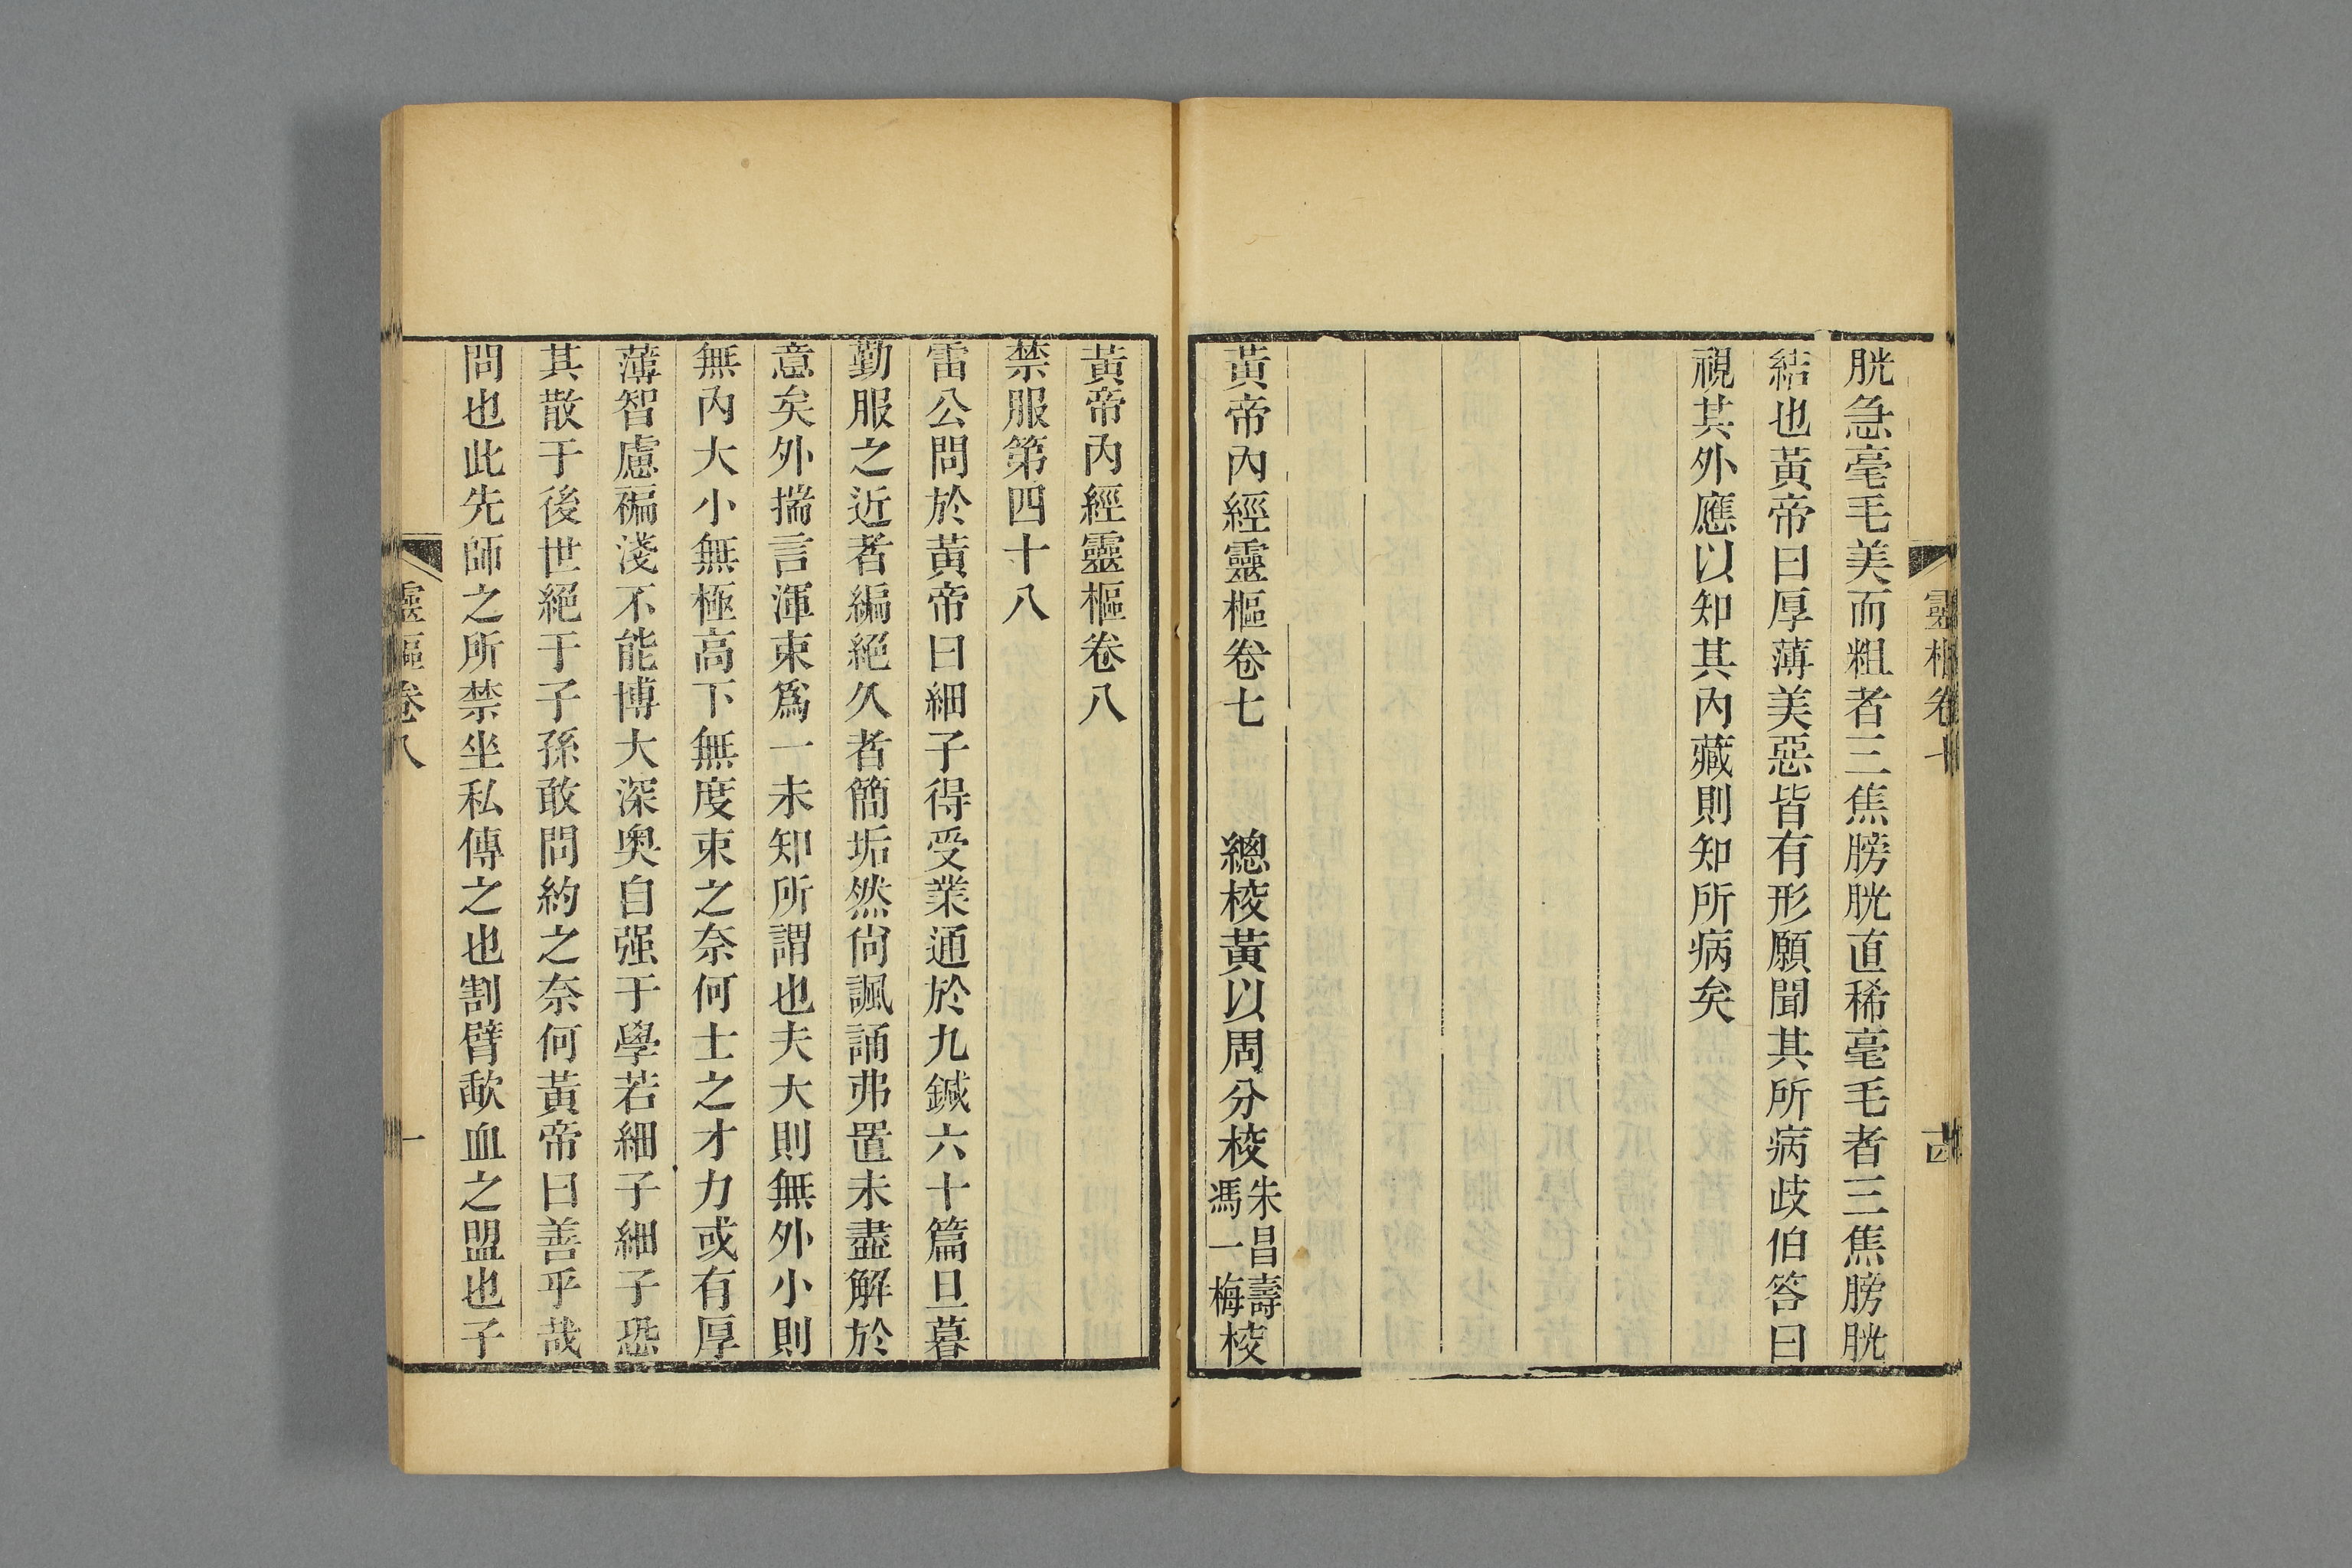 靈樞卷
胱急毫毛美而粗者三焦膀胱直稀毫毛者三焦膀胱
結也黃帝曰厚薄美惡皆有形願聞其所病歧伯答曰
視其外應以知其內藏則知所病矣
黃帝內經靈樞卷七 總校黃以周分校朱昌壽馮一梅校
黃帝內經靈樞卷八
禁服第四十八
雷公問於黃帝曰細子得受業通於九鍼六十篇旦暮
勤服之近者編絕久者簡垢然尙諷誦弗置未盡解於
意矣外揣言渾束爲一未知所謂也夫大則無外小則
無內大小無極高下無度束之奈何士之才力或有厚
薄智慮褊淺不能博大深奧自强于學若細子細子恐
其散于後世絕于子孫敢問約之奈何黃帝曰善乎哉
問也此先師之所禁坐私傳之也割臂歃血之盟也子
靈樞卷八 一